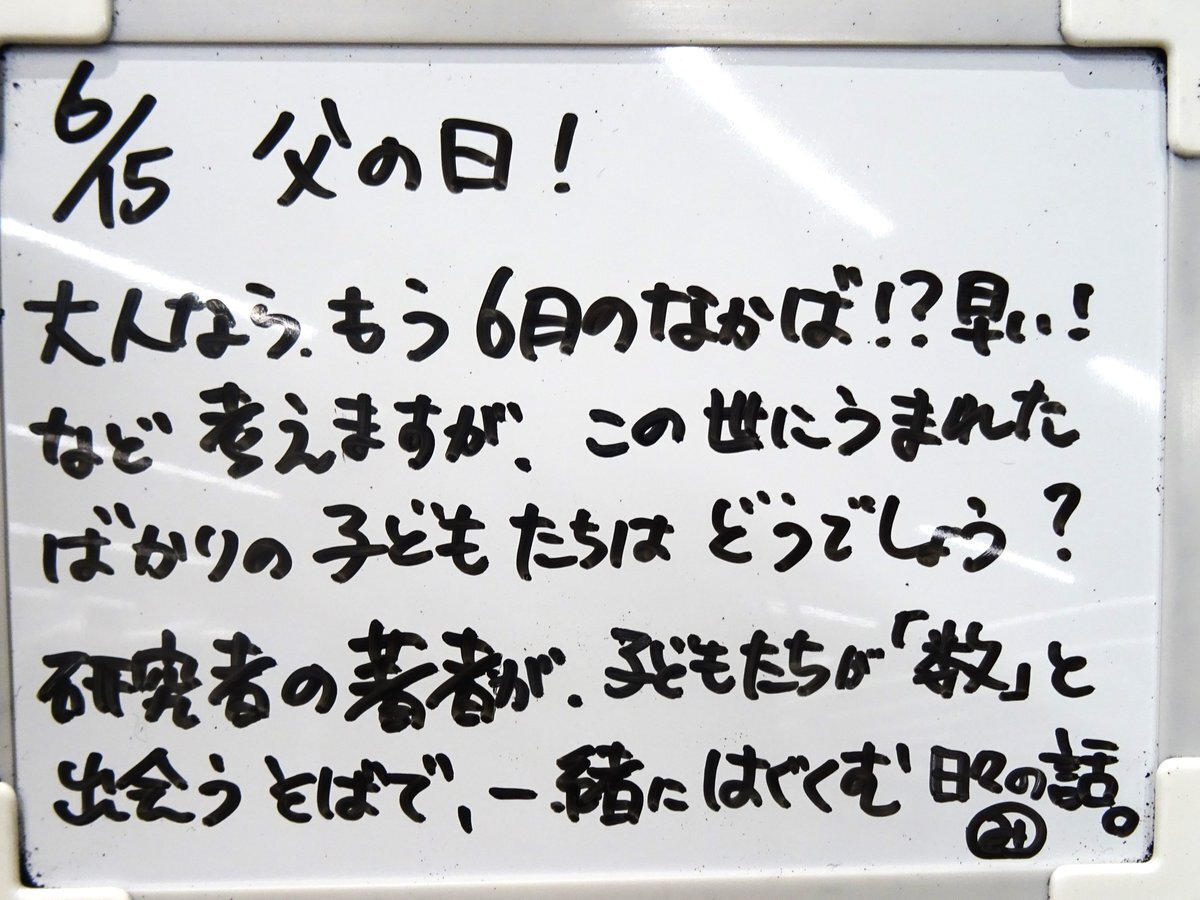 6/15 父の日!
大人なら、もう6月のなかば!?早い!
など考えますが、この世にうまれた
ばかりの子どもたちはどうでしょう?
研究者の著者が、子どもたちが「数」と
出会うそばで、一緒にはぐくむ日々の話。